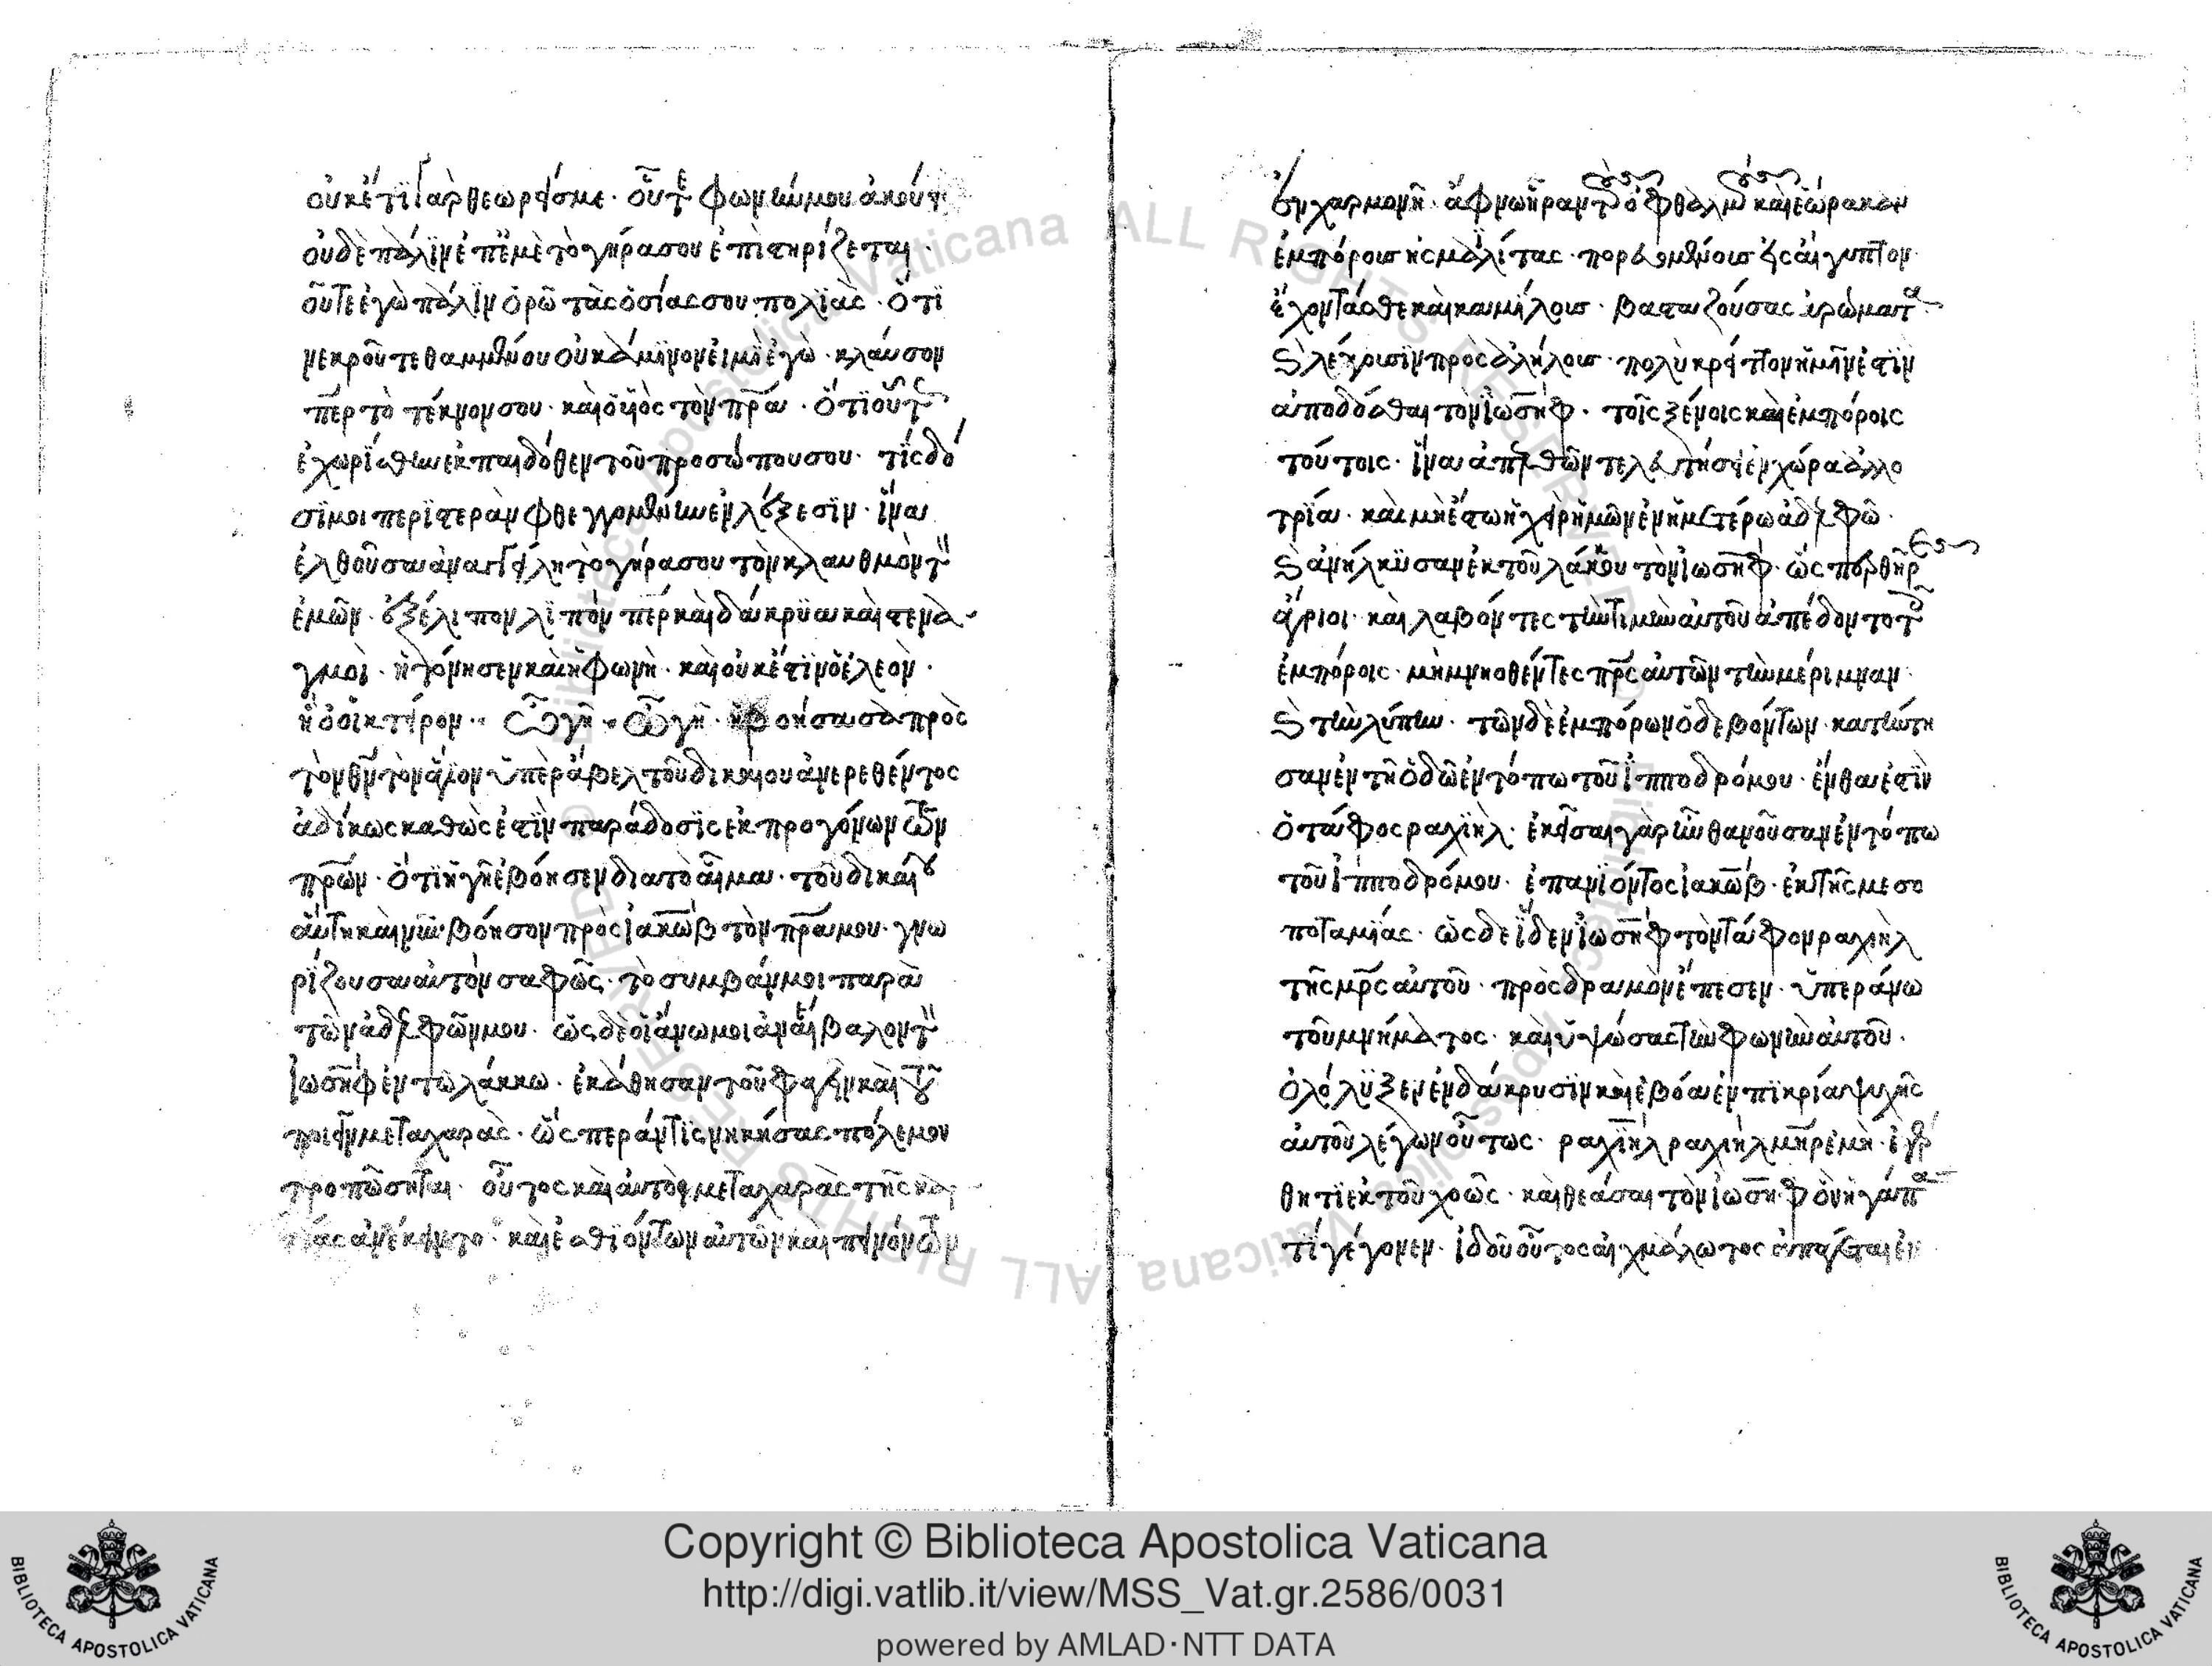 οὐκέτϊ γὰρ θεωρεῖσμε· οὔτε φωνὴν μου ἀκούει
οὐδὲ πάλϊν ἐπ ἐμὲ τὸ γήρασου ἐπιστηρίζεται·
οὔτε ἐγὼ πάλϊν ὁρῶ τὰς ὁσίας σου πολϊάς· ὅτϊ
νεκροῦ τεθαμμένου οὐκάμϊνον εἰμῒ ἐγὼ· κλαύσον
π̅ε̅ρ τὸ τέκνον σου· καὶ ὁ ϋἱὸς τὸν π̅ρ̅α· ὅτϊ οὕτως
ἐχωρίσθην ἐκ παιδόθεν τοῦ προσώπου σου· τίς δό
σϊ μοι περϊστερὰν φθεγγομένην ἐν λέξεσϊν· ἵνα
ἐλθοῦσα ἀναγγείλη τὸ γήρασου τὸν κλαυθμὸν τῶν
ἐμῶν· ἐξέλιπον λϊπὸν π̅ε̅ρ καὶ δάκρϋα καὶ στενα
γμοὶ· ἠτόνησεν καὶ ἡ φωνὴ· καὶ οὐκ ἔστϊν ὁ ἐλεὸν·
ἢ ὁ οἰκτίρον·· ὦ γῆ· ὦ γῆ· ἡ βοήσασα πρὸς
τὸν θ̅ν̅ τὸν ἅγϊον ὑπὲρ ἄβελ τοῦ δικαίου ἀνερεθέντος
ἀδίκως καθὼς ἐστὶν παράδοσϊς ἐκ προγόνων τῶν
π̅ρ̅ων· ὅτϊ ἡ γῆ ἐβόησεν διατὸ αἷμα· τοῦ δικαίου
αὕτη καὶ νῦν βόησον πρὸς ἰακὼβ τὸν π̅ρ̅α μου· γνω
ρίζουσα αὐτὸν σαφῶς· τὸ συμβάν μοι παρὰ
τῶν ἀδελφῶν μου· ὡς δὲ οἱ ἄνωμοι ἀναιεῖ βαλοντῶν
ἰωσὴφ ἐν τῶ λάκκω· ἐκάθησαν τοῦ φαγεῖν καὶ τοῦ
ποιεῖν μετα χαρὰς· ὥς περ ἄν τϊς νηκήσας πόλεμον
τροπῶσηται· οὕτος καὶ αὐτοὶ μετα χαρὰς τῆς καρ
δίας ἀνέκειντο· καὶ ἐσθϊόντων αὐτῶν καὶ πεινόντων
ἐν χαρμονῆ· ἄφνω ἤραν τοὺς ὀφθαλμοὺς καὶ ἑώρακαν
ἐμπόρους ἡσμαλίτας· πορευομένους εἰς αἴγυπτον
ἔχοντάς θε καὶ καμήλους· βασταζούσας ἀρώματα
κ λέγουσϊν πρὸς ἀλήλους· πολὺ κρεῖττον ἡμῖν ἐστϊν
ἀποδόσθαι τὸν ἰωσὴφ· τοῖς ξένοις καὶ ἐμπόροις
τούτοις· ἵνα ἀπελθὼν τελευτήσει ἐν χώρα ἀλλο
τρία· καὶ μὴ ἔστω ἡ χεὶρ ἡμῶν ἐν ἡμετέρω ἀδελφῶ·
κ ἀνήλκϋσαν ἐκ τοῦ λάκκου τὸν ἰωσὴφ· ὡς πορθηρες
ἄγριοι· καὶ λαβόντες τὴν τιμὴν αὐτοῦ ἀπέδοντο τοῖς
ἐμπόροις· μὴ μνησθέντες π̅ρ̅ς αὐτῶν τὴν μέριμναν·
κ τὴν λύπην· τῶν δὲ ἐμπόρων ὁδεβόντων· κατήντη
σαν ἐν τῆ ὁδῶ ἐν τόπω τοῦ ἱπποδρόμου· ἔνθα ἐστὶν
ὁ τάφος ραχϊὴλ· ἐκεῖσαι γὰρ ἦν θανοῦσα ἐν τόπω
τοῦ ἱπποδρόμου· ἐπανϊόντος ἰακὼβ· ἐκ τῆς μεσο
ποταμίας· ὡς δὲ ἴδεν ἰωσὴφ τὸν τάφον ραχιὴλ
τῆς μ̅ρ̅ς αὐτοῦ· πρὸςδραμὸν ἔπεσεν· ὑπεράνω
τοῦ μνήματος· καὶ ὑψώσας τὴν φωνὴν αὐτοῦ·
ὀλόλϋξεν ἐν δάκρυσϊν καὶ ἐβόα ἐν πϊκρία ψυχῆς
αὐτοῦ λέγων οὕτως· ραχιὴλ ραχιὴλ μῆρ ἐμὴ· ἐγέρ
θητϊ ἐκ τοῦ χοῶς· καὶ θεάσαι τὸν ἰωσὴφ ὃν ἠγάπας
τϊ γέγονεν· ἰδοῦ οὕτος αἰχμάλωτος ἀπάγεται ἐν
Copyright © Biblioteca Apostolica Vaticana
http://digi.vatlib.it/view/MSS_Vat.gr.2586/0031
powered by AMLAD·NTT DATA
BIBLIOTECA APOSTOLICA VATICANA
BIBLIOTECA APOSTOLICA VATICANA